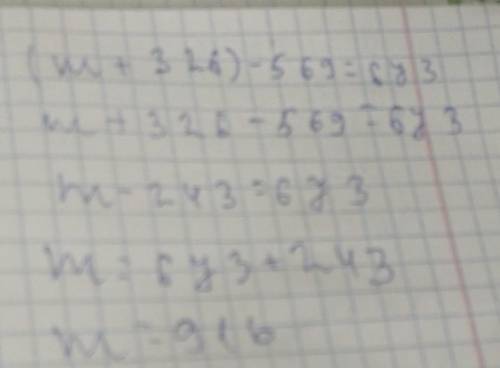 (m + 326) - 569 = 673
m + 326 - 569 = 673
m - 243 = 673
m = 673 + 243
m = 916